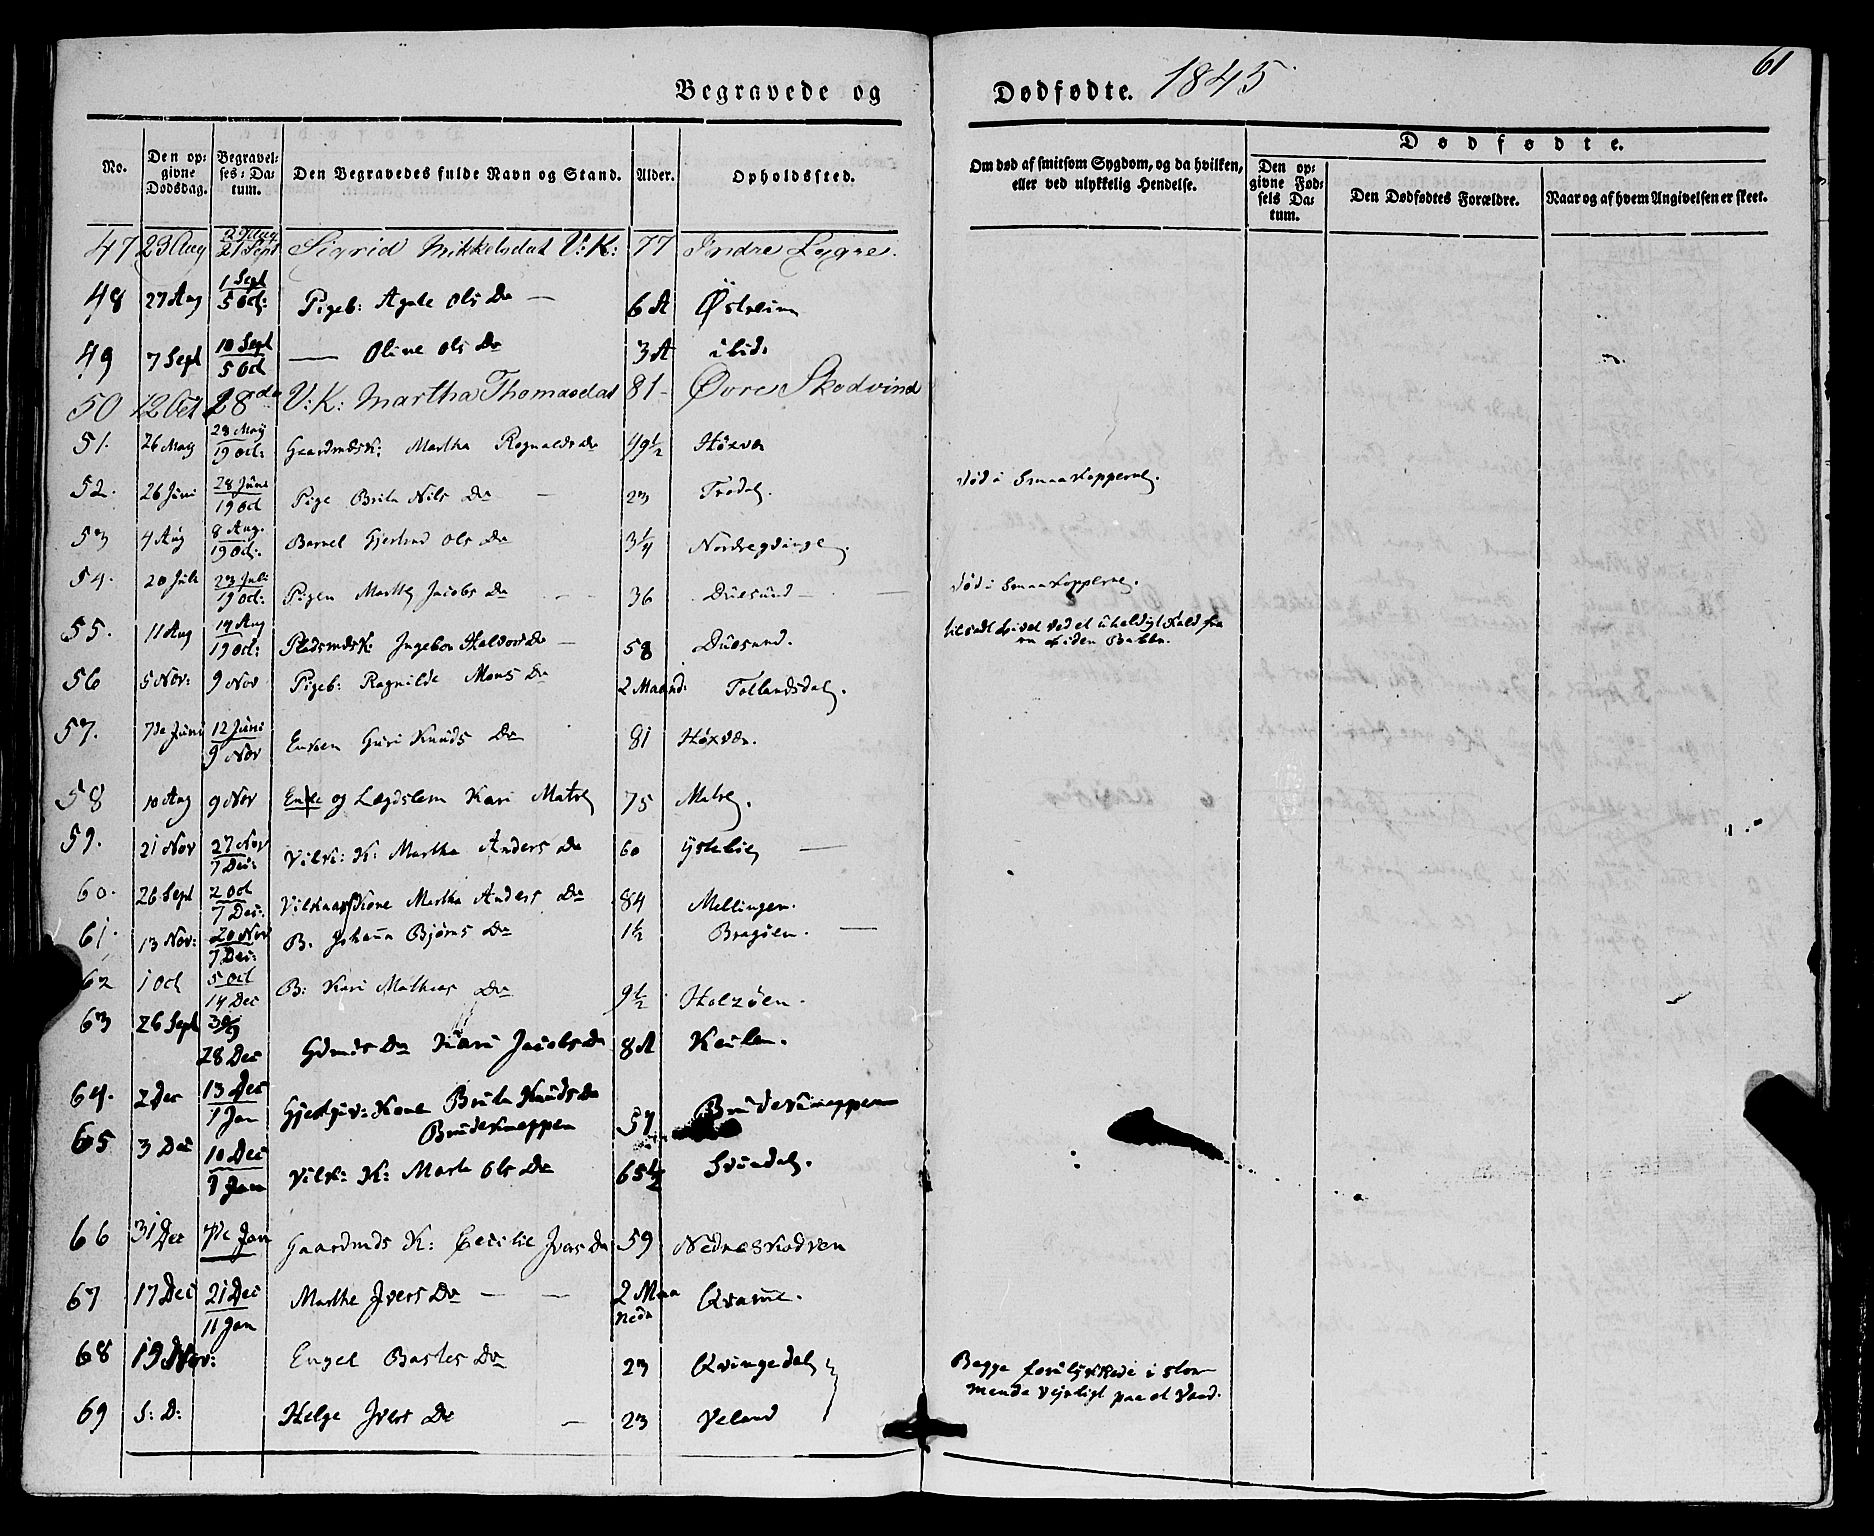 61
Begravede og Dødfødte. 1845
No. Den opgivne Dødsdag. Begravelses-Datum. Den Begravedes fulde Navn og Stand. Alder. Opholdssted. Om død af smitsom Sygdom, og da hvilken, eller ved ulykkelig Hendelse. Dødfødte. Den opgivne Fødsels Datum. Den Dødfødtes Forældre. Naar og af hvem Angivelsen er skeet.
47 23 Aug 21 Sept Sigrid Mikkelsdat V: K: 77 Indre Lygre.
48 27 Aug 1 Sept 5 Oct: Pigeb: Agate Ols Dr — 6 A Østreim
49 7 Sept 10 Sept 5 Oct — Oline Ols Dr 3 A ibid.
50 12 Oct 28 do V: K: Martha Thomasdat 81- Øvre Skodvind
51. 26 May 28 May 19 Oct: Gaardmdsk: Martha Rognalds Dr 49 1/2 Høxver
52. 26 Juni 28 Juni 19 Oct Pige Brita Nils Dr — 23 Trodal. død i Smaakopperne.
53 4 Aug 8 Aug. 19 Oct. Barnet Gjertrud Ols Dr 3 1/4
54. 20 Juli 23 Juli 19 Oct: Pigen Marthe Jacobs Dr — 36 Duesund — død i Smaakopperne.
55. 11 Aug 14 Aug 19 Oct: Pladsmdsk: Ingebor Halvors Dr — 58 Duesund. tilsadt Livet ved et uheldigt Fald fra
56 5 Nov: 9 Nov Pigeb: Ragnilde Mons Dr 2 Maand: Totlandsdal.
57. 7de Juni 12 Juni 9 Nov Enken Guri Knuds Dr 81 Høxver.
58 10 Aug 9 Nov Enke og Lægdslem Kari Matre 75 Matre.
59. 21 Nov 27 Nov 7 Dec: Vilk: K: Martha Anders Dr 60 Ystebø —
60. 26 Sept 2 Oct 7 Dec: Vilkaarskone Martha Anders Dr 84 Mellingen.
61. 13 Nov: 20 Nov 7 Dec: B. Johanna Bjørns Dr 1 1/2 —
62 1 Oct 5 Oct 14 Dec B: Kari Mathias Dr 9 1/2
63 26 Sept 28 Dec Kari Jacobs Dr 8 A
64. 2 Dec 13 Dec 1 Jan Gjestgiv: Kone Brita Knuds Dr Brudeknappen 57 Brudeknappen
65 3 Dec 10 Dec 1 Jan Vilk: K: Marta Ols Dr 65 1/2
66 31 Dec Jan Gaardmds K: Cecilie Ivers Dr 59 Nedreskodven
67 17 Dec 21 Dec 11 Jan Marthe Ivers Dr — — 2 Maaneder Qvamme.
68 19 Nov: Engel Bastes Dr 23 Qvingedal Begge forulykkede i stor-
mende Veirligt paa et Vaad.
69 S: D: Helge Ivers Dr — 23 Veland